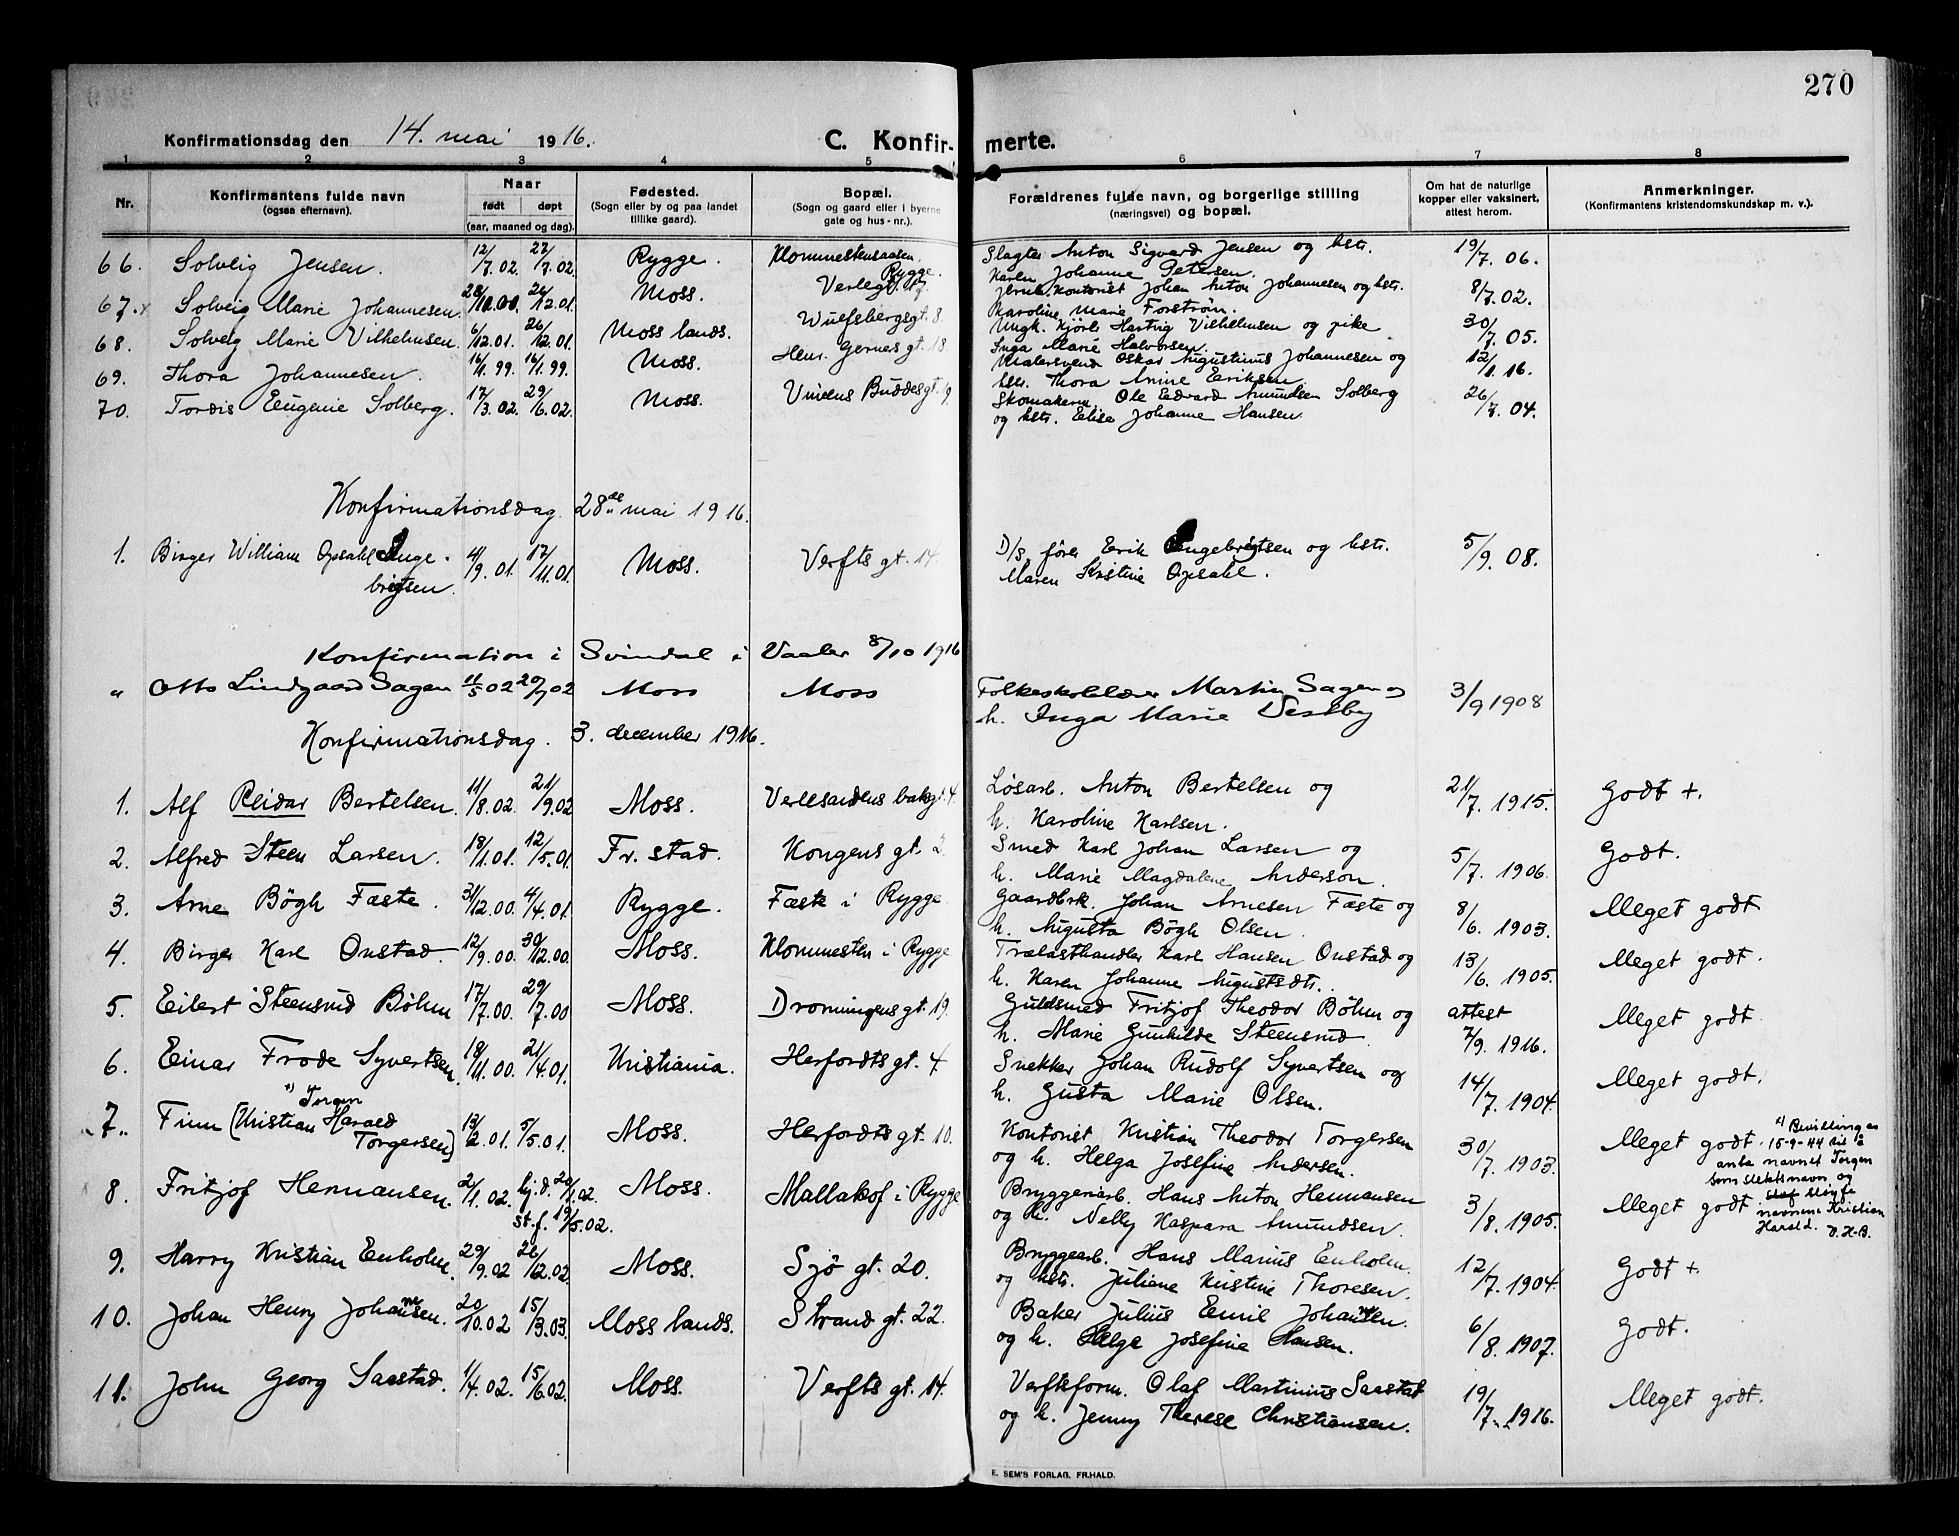 270
Konfirmationsdag den 14. mai 1916.
C. Konfirmerte.
1 2 3 4 5 6 7 8
Nr.
Konfirmantens fulde navn (ogsaa efternavn).
Naar født døpt (aar, maaned og dag).
Fødested. (Sogn eller by og paa landet tillike gaard).
Bopæl. (Sogn og gaard eller i byerne gate og hus-nr.).
Forældrenes fulde navn, og borgerlige stilling (næringsvei) og bopæl.
Om hat de naturlige kopper eller vaksinert, attest herom.
Anmerkninger. (Konfirmantens kristendomskundskap m. v.).
66. Solveig Jensen. 12/7.02. 27/7.02. Rygge. Klommestensaasen, Rygge. Slagter Anton Sigvard Jensen og hstr. 19/7. 06.
Karen Johanne Petersen.
67. x Solveig Marie Johannesen. 26/12.01. Moss. Verlegt. 17 Kontorist Johan Anton Johannesen og hstr. 8/7. 02.
Karoline Marie Forström.
68. Solveig Marie Vilhelmsen. 6/12.01. 26/12.01. Moss lands. Wulfsbergsgt. 8 Ungk. Kjörer Hartvig Vilhelmsen og pike 30/7. 05.
Inga Marie Halvorsen.
69. Thora Johannesen. 16/1. 99. 16/1. 99. Moss. Henr. Gernes gt. 18. Malersvend Oskar Augustinus Johannesen og 12/1. 16.
hstr. Thora Anine Eriksen.
70. Tordis Eugenie Solberg. 17/3. 02. 29/6. 02. Moss. Vincens Buddes gt. 9. Skomakerm. Ole Edvard Amundsen Solberg 26/7. 04.
og hstr. Elise Johanne Hansen.
Konfirmationsdag 28de mai 1916.
1. Birger William Opsahl Enge- 4/9. 01. 17/11.01. Moss. Verfts gt. 14. D/s. fører Erik Engebrigtsen og hstr. 5/9. 08.
brigtsen. Maren Kristine Opsahl.
Konfirmation i Svindal i Vaaler 8/10 1916
" Otto Lindgaard Sagen 11/5 02 20/7 02 Moss Moss Folkeskolelærer Martin Sagen og 3/9 1908
h. Inga Marie Vestby
Konfirmationsdag. 3. december 1916.
1. Alf Reidar Bertelsen. 11/8. 02. 21/9. 02 Moss. Verlesandens bakgt. 4. Løsarb. Anton Bertelsen og 21/7. 1915. Godt +.
h. Karoline Karlsen.
2. Alfred Steen Larsen. 18/1. 01. 12/5. 01. Fr. stad. Kongens gt. 2. Smed Karl Johan Larsen og 5/7. 1906. Godt.
h. Marie Magdalene Anderson.
3. Arne Bögh Fæste. 31/12. 00. 4/4. 01. Rygge. Fæste i Rygge Gaardbrk. Johan Arnesen Fæste og 8/6. 1903. Meget godt
h. Augusta Bögh Olsen.
4. Birger Karl Onstad. 12/9. 00. 30/12. 00. Moss. Klommesten i Rygge Trælasthandler Karl Hansen Onstad og 13/6. 1905. Meget godt.
h. Karen Johanne Augustsdtr.
5. Eilert Steensrud Böhm 17/7. 00. 29/7. 00 Moss. Dronningens gt. 19. Guldsmed Fritjof Theodor Böhm og attest 7/9. 1916. Meget godt
h. Marie Gunhilde Steensrud.
6. Einar Frode Syvertsen. 18/11. 00. 21/4. 01. Kristiania. Herfordts gt. 4 Snekker Johan Rudolf Syvertsen og 14/7. 1904. Meget godt.
h. Gusta Marie Olsen.
1) Torgen
7. Finn [Kristian Harald 13/2. 01. 5/5. 01. Moss. Herfordts gt. 10. Kontorist Kristian Theodor Torgersen 30/7. 1903. Meget godt.
Torgersen] og h. Helga Josefine Andersen.
1) Bevilling av
15-9-44 til å
anta navnet Torgen
som slektsnavn og
sløyfe
navnene Kristian
Harald. O. H-B.
8. Fritjof Hermansen. 2/1. 02. hj. d. 20/1. 02. Moss. Mallakof i Rygge Bryggeriarb. Hans Anton Hermansen 3/8. 1905. Meget godt
st. f. 19/5. 02. og h. Nelly Kaspara Amundsen.
9. Harry Kristian Enholm. 29/9. 02 26/12. 02. Moss. Sjø gt. 20. Bryggearb. Hans Marius Enholm. 12/7. 1904. Godt +
og hstr. Juliane Kristine Thoresen.
10. Johan Henry Johannesen. 20/10. 02 15/3. 03. Moss lands. Strand gt. 22. Baker Julius Emil Johannesen. 6/8. 1907. Godt.
og h. Helga Josefine Hansen.
11. John Georg Saastad. 1/4. 02. 15/6. 02. Moss. Verfts gt. 14. Verftsform. Olaf Martinius Saastad 19/7. 1916. Meget godt.
og h. Jenny Therese Christiansen.
E. SEM'S FORLAG, FR.HALD.